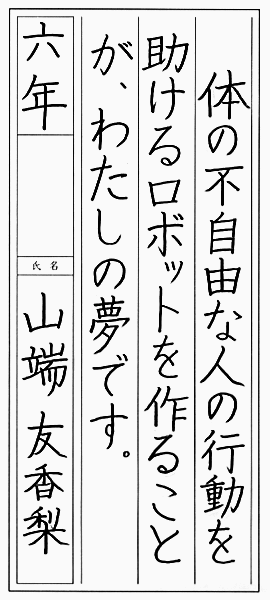 体の不自由な人の行動を
助けるロボットを作ること
が、わたしの夢です。
六年
氏名
山端友香梨